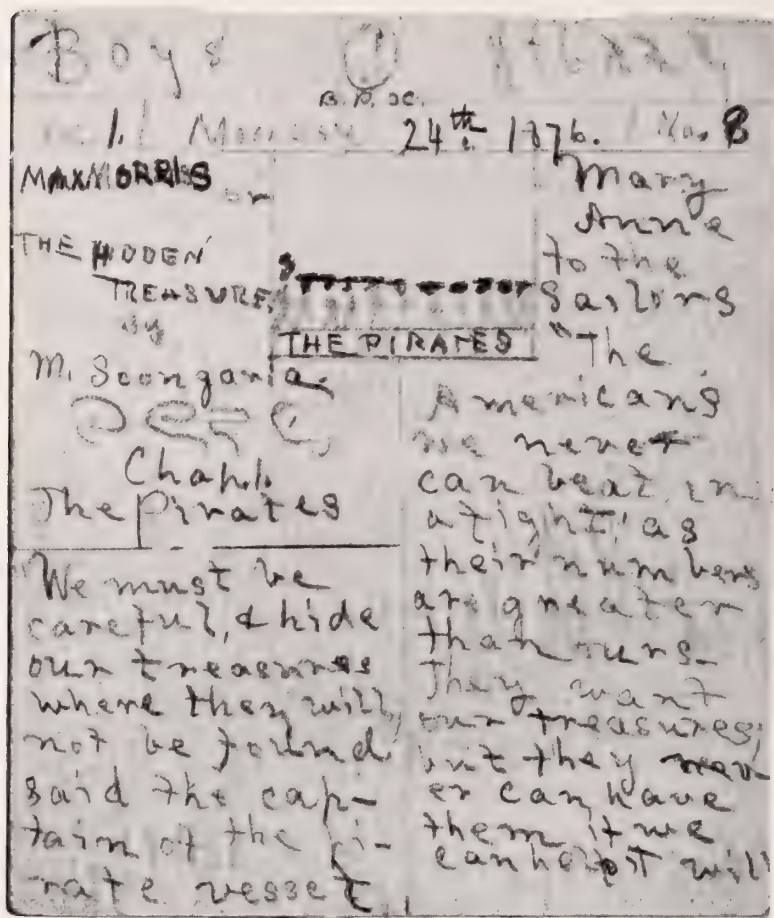 Boys
B. P. SC.
24th 1876. No. 8
MAX MORRISS
or
THE HIDDEN
TREASURE,
by
M. Scongaria.
THE PIRATES
Chap. 1.
The Pirates
"We must be
careful, & hide
our treasures
where they will,
not be found,
said the cap-
tain of the pi-
rate vessel
Mary
Anne
to the
sailors
"The
Americans
we never
can beat in
a fight, as
their numbers
are greater
than ours.
They want
our treasures;
but they nev
er can have
them if we
can help it will